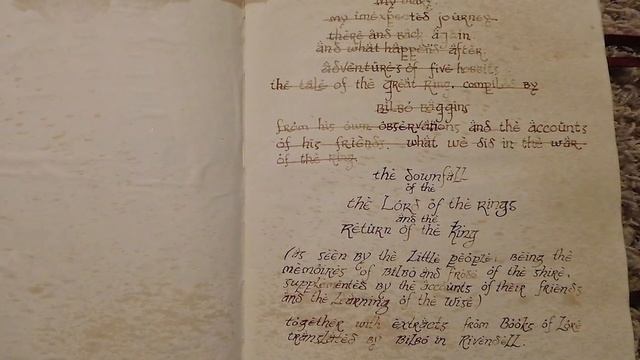 my diary.
my unexpected journey
there and back again
and what happened after.
adventures of five hobbits
the tale of the great Ring, compiled by
Bilbo Baggins
from his own observations and the accounts
of his friends. what we did in the war
of the ring.
the downfall
of the
the Lord of the Rings
and the
Return of the King
(as seen by the Little people; being the
memoires of Bilbo and Frodo of the shire,
supplemented by the accounts of their friends
and the Learning of the Wise)
together with extracts from Books of Lore
translated by Bilbo in Rivendell.